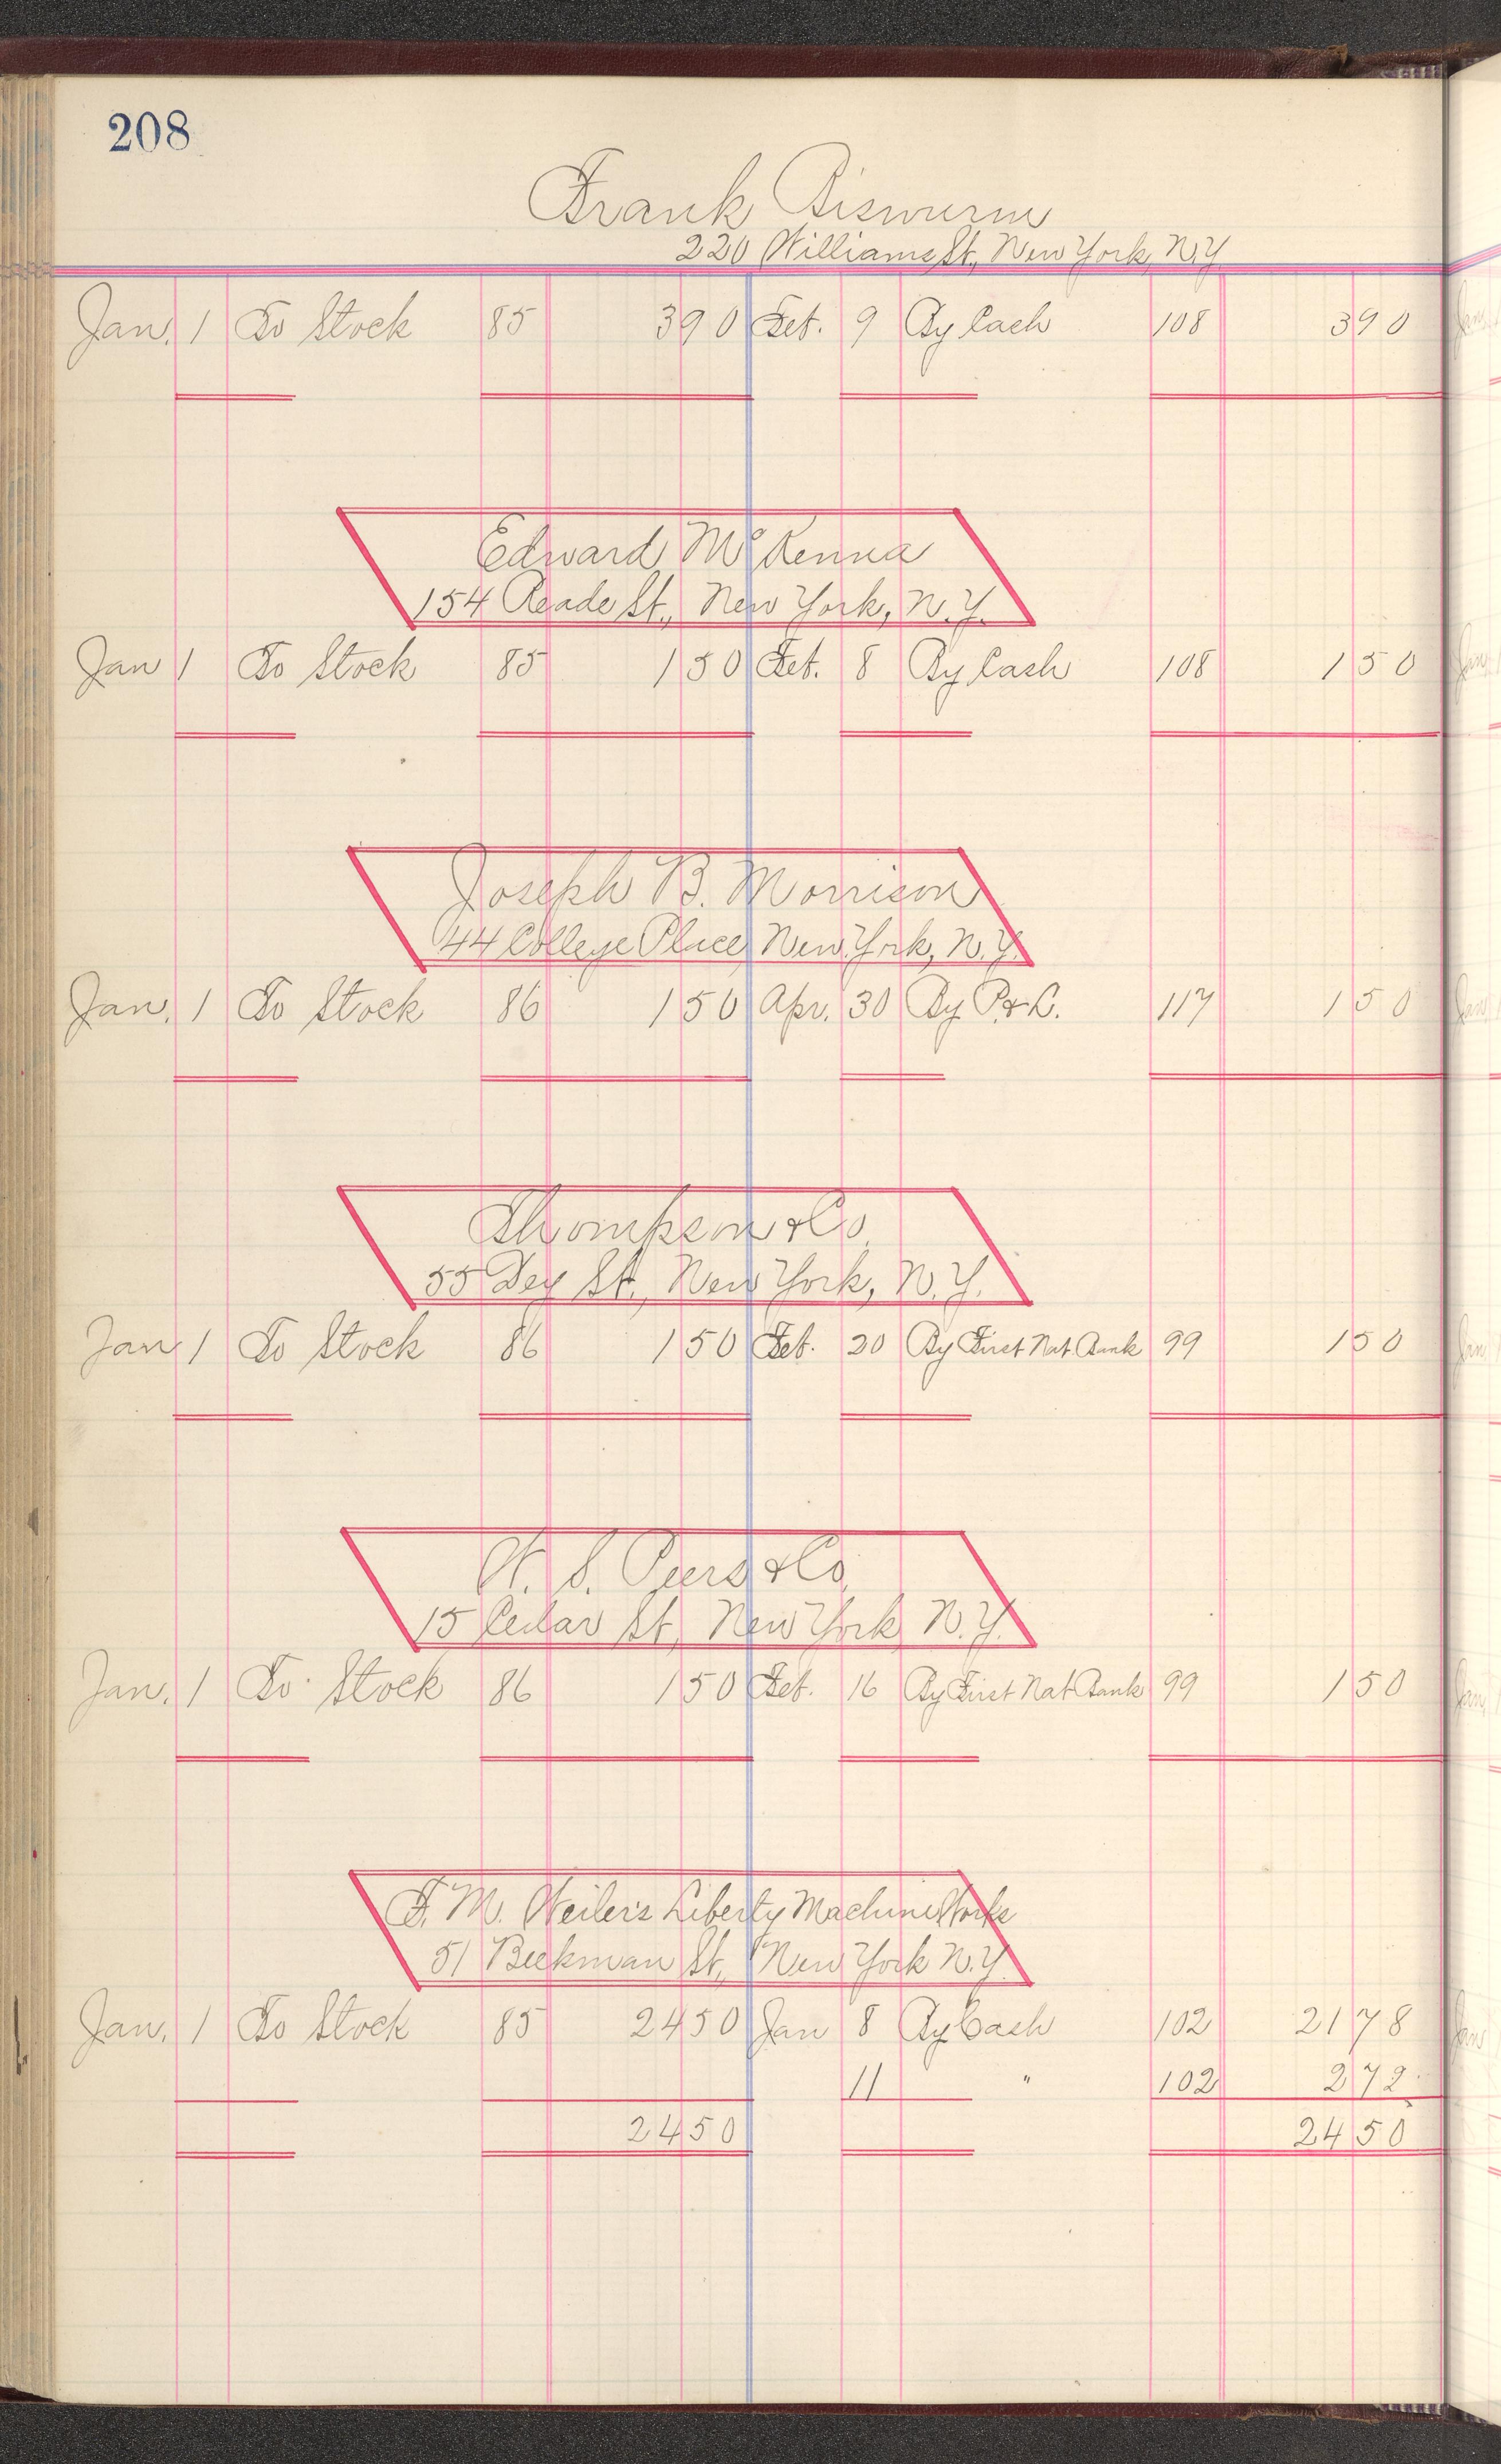 208
Frank Biswurm
220 Williams St., New York, N.Y.
Jan. 1 To Stock 85 390 Feb. 9 By Cash 108 390
Edward McKenna
154 Reade St., New York, N.Y.
Jan 1 To Stock 85 150 Feb. 8 By Cash 108 150
Joseph B. Morrison
44 College Place, New York, N.Y.
Jan. 1 To Stock 86 150 Apr. 30 By P. & L. 117 150
Thompson & Co.
55 Dey St., New York, N.Y.
Jan 1 To Stock 86 150 Feb. 20 By First Nat. Bank 99 150
W. S. Peers & Co.
15 Cedar St., New York, N.Y.
Jan. 1 To Stock 86 150 Feb. 16 By First Nat Bank 99 150
F. M. Weiler's Liberty Machine Works
51 Beekman St., New York N.Y.
Jan. 1 To Stock 85 2450 Jan 8 By Cash 102 2178
11 " 102 272
2450 2450